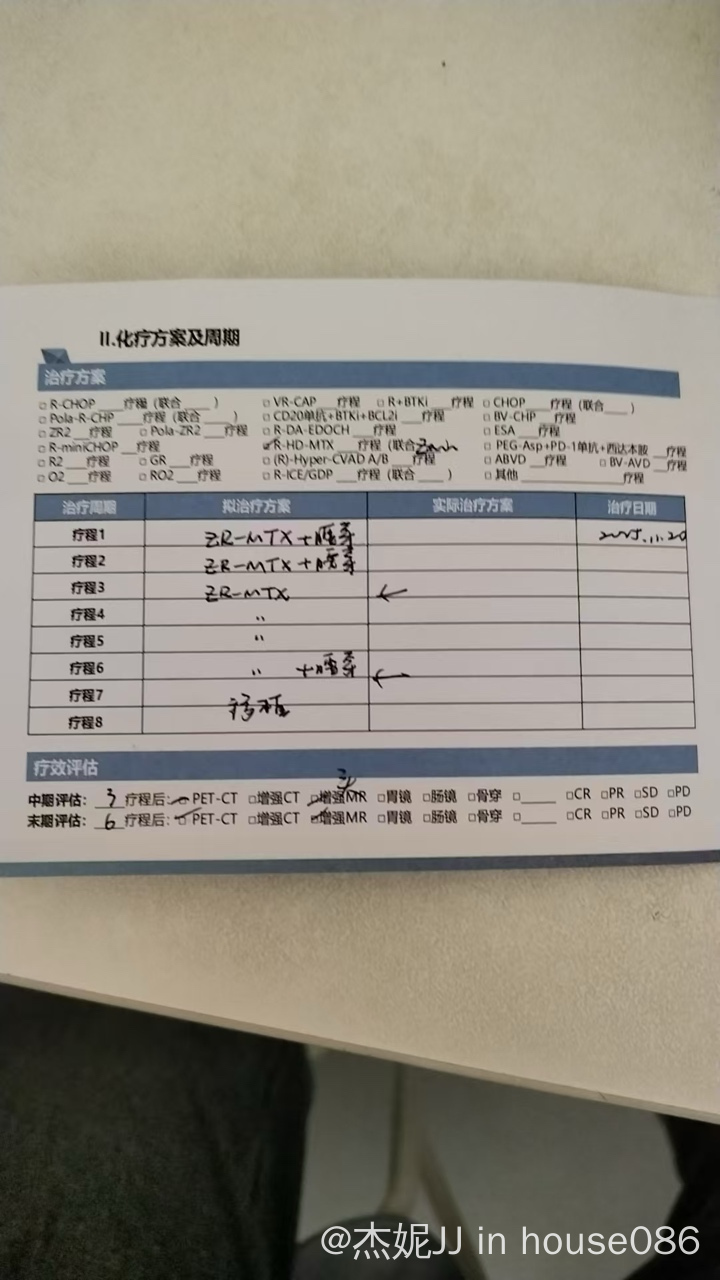 II.化疗方案及周期
治疗方案
□ R-CHOP ___疗程（联合____） □ VR-CAP ___疗程 □ R+BTKi ___疗程 □ CHOP ___疗程（联合____）
□ Pola-R-CHP ___疗程（联合____） □ CD20单抗+BTKi+BCL2i ___疗程 □ BV-CHP ___疗程
□ ZR2 ___疗程 □ Pola-ZR2 ___疗程 □ R-DA-EDOCH ___疗程 □ ESA ___疗程
□ R-miniCHOP ___疗程 ☑ R-HD-MTX ___疗程（联合 □ PEG-Asp+PD-1单抗+西达本胺 ___疗程
□ R2 ___疗程 □ GR ___疗程 □ (R)-Hyper-CVAD A/B ___疗程 □ ABVD ___疗程 □ BV-AVD ___疗程
□ O2 ___疗程 □ RO2 ___疗程 □ R-ICE/GDP ___疗程（联合____） □ 其他 ______疗程
治疗周期 拟治疗方案 实际治疗方案 治疗日期
疗程1 ZR-MTX+腰穿 2025.11.20
疗程2 ZR-MTX+腰穿
疗程3 ZR-MTX ←
疗程4 〃
疗程5 〃
疗程6 〃 +腰穿 ←
疗程7 移植
疗程8
疗效评估
中期评估：3 疗程后：☑ PET-CT □增强CT ☑增强MR □胃镜 □肠镜 □骨穿 □____ □CR □PR □SD □PD
末期评估：6 疗程后：☑ PET-CT □增强CT ☑增强MR □胃镜 □肠镜 □骨穿 □____ □CR □PR □SD □PD
@杰妮JJ in house086